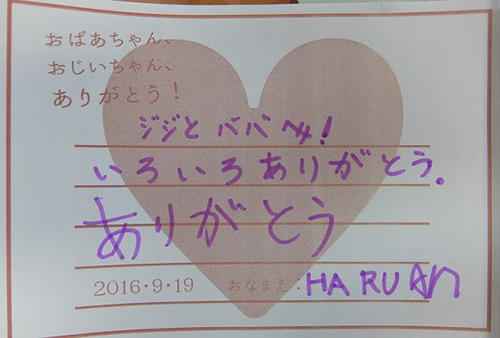 おばあちゃん、
おじいちゃん、
ありがとう!
ジジと ババへ!
いろいろありがとう。
ありがとう
2016・9・19 おなまえ:HARUAn